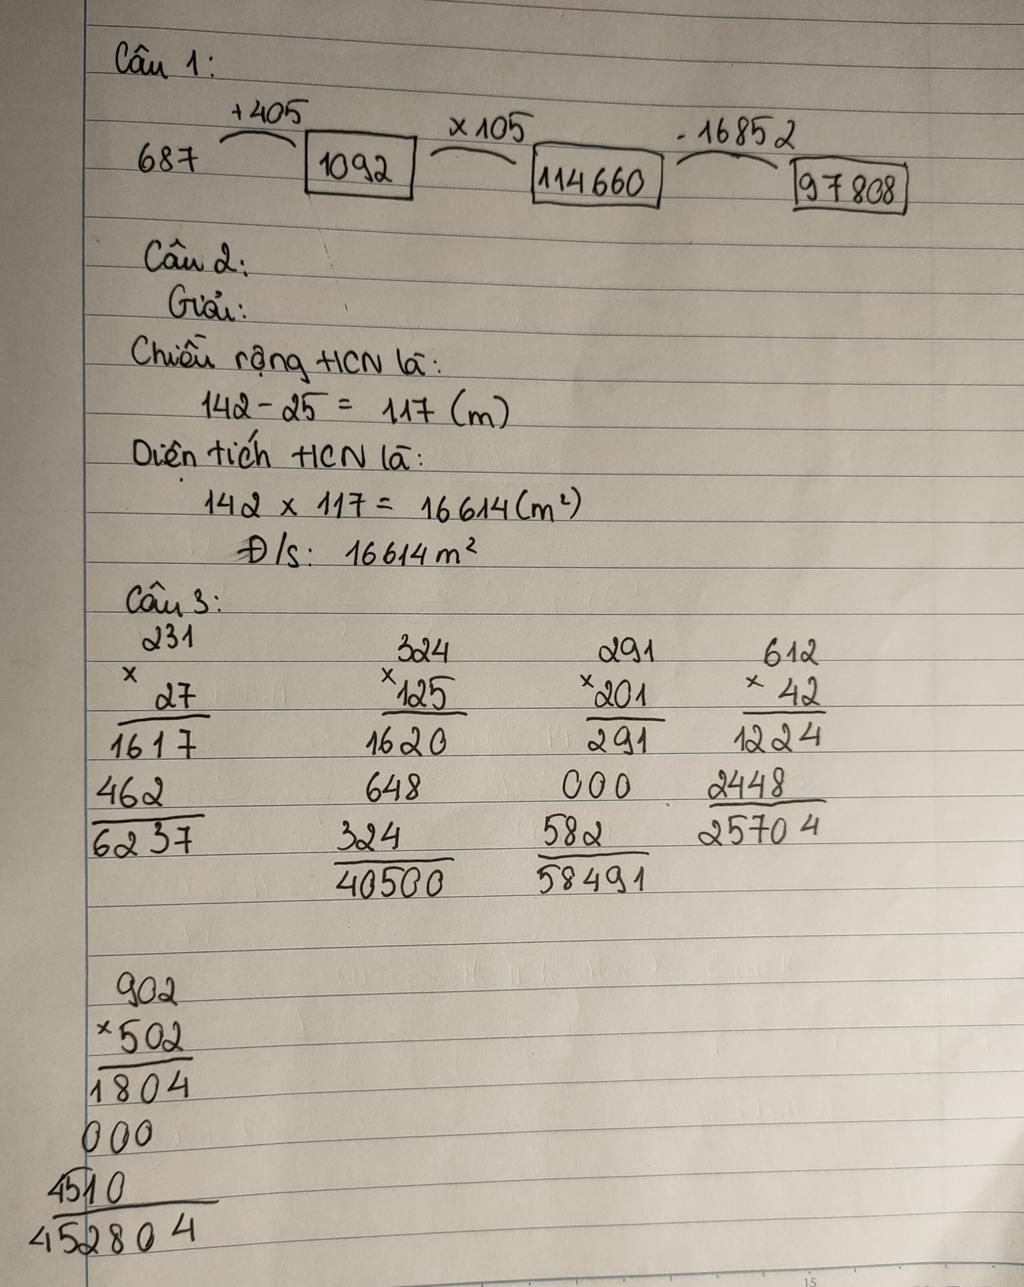 Câu 1:
+405 x105 -16852
687 1092 114660 97808
Câu 2:
Giải:
Chiều rộng HCN là:
142 - 25 = 117 (m)
Diện tích HCN là:
142 x 117 = 16614 (m²)
Đ/s: 16614 m²
Câu 3:
231 324 291 612
x 27 x 125 x 201 x 42
1617 1620 291 1224
462 648 000 2448
6237 324 582 25704
40500 58491
902
x 502
1804
000
4510
452804
15